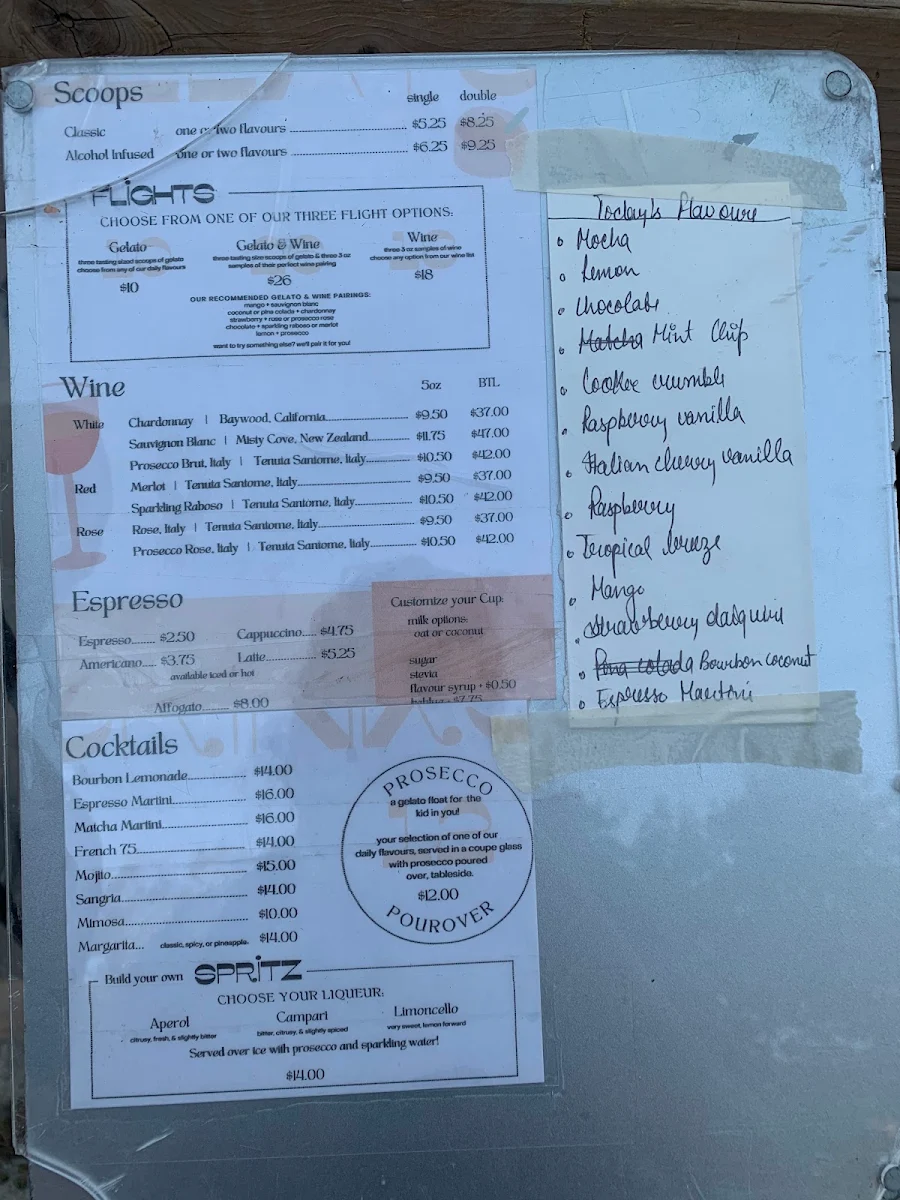 Scoops
single double
Classic one or two flavours $5.25 $8.25
Alcohol Infused one or two flavours $6.25 $9.25
FLiGHTS
CHOOSE FROM ONE OF OUR THREE FLIGHT OPTIONS:
Gelato Gelato & Wine Wine
three tasting sized scoops of gelato three tasting size scoops of gelato & three 3 oz three 3 oz samples of wine
choose from any of our daily flavours samples of their perfect wine pairing choose any option from our wine list
$10 $26 $18
OUR RECOMMENDED GELATO & WINE PAIRINGS:
mango + sauvignon blanc
coconut or pina colada + chardonnay
strawberry + rose or prosecco rose
chocolate + sparkling raboso or merlot
lemon + prosecco
want to try something else? we'll pair it for you!
Wine 5oz BTL
White Chardonnay | Baywood, California $9.50 $37.00
Sauvignon Blanc | Misty Cove, New Zealand $11.75 $47.00
Prosecco Brut, Italy | Tenuta Santome, Italy $10.50 $42.00
Red Merlot | Tenuta Santome, Italy $9.50 $37.00
Sparkling Raboso | Tenuta Santome, Italy $10.50 $42.00
Rose Rose, Italy | Tenuta Santome, Italy $9.50 $37.00
Prosecco Rose, Italy | Tenuta Santome, Italy $10.50 $42.00
Espresso
Espresso $2.50 Cappuccino $4.75
Americano $3.75 Latte $5.25
available iced or hot
Affogato $8.00
Customize your Cup:
milk options:
oat or coconut
sugar
stevia
flavour syrup + $0.50
Cocktails
Bourbon Lemonade $14.00
Espresso Martini $16.00
Matcha Martini $16.00
French 75 $14.00
Mojito $15.00
Sangria $14.00
Mimosa $10.00
Margarita... classic, spicy, or pineapple. $14.00
PROSECCO
a gelato float for the
kid in you!
your selection of one of our
daily flavours, served in a coupe glass
with prosecco poured
over, tableside.
$12.00
POUROVER
Build your own SPRiTZ
CHOOSE YOUR LIQUEUR:
Aperol Campari Limoncello
citrusy, fresh, & slightly bitter bitter, citrusy, & slightly spiced very sweet, lemon forward
Served over ice with prosecco and sparkling water!
$14.00
Today's Flavours
Mocha
Lemon
Chocolate
Matcha Mint Chip
Cookie crumble
Raspberry vanilla
Italian cherry vanilla
Raspberry
Tropical breeze
Mango
Strawberry daiquiri
Pina colada Bourbon coconut
Espresso Martini